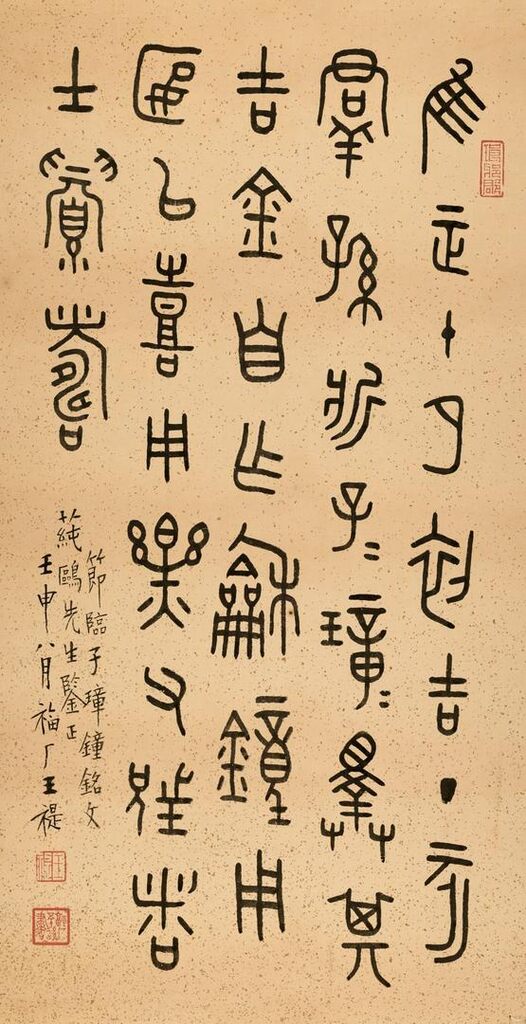 隹正十月初吉丁亥
群孫斨子=璋=擇其
吉金自乍龢鐘用
匽㠯喜用樂父兄者
士眉壽
節臨子璋鐘銘文
蒓鷗先生鑒正
壬申八月福厂王禔